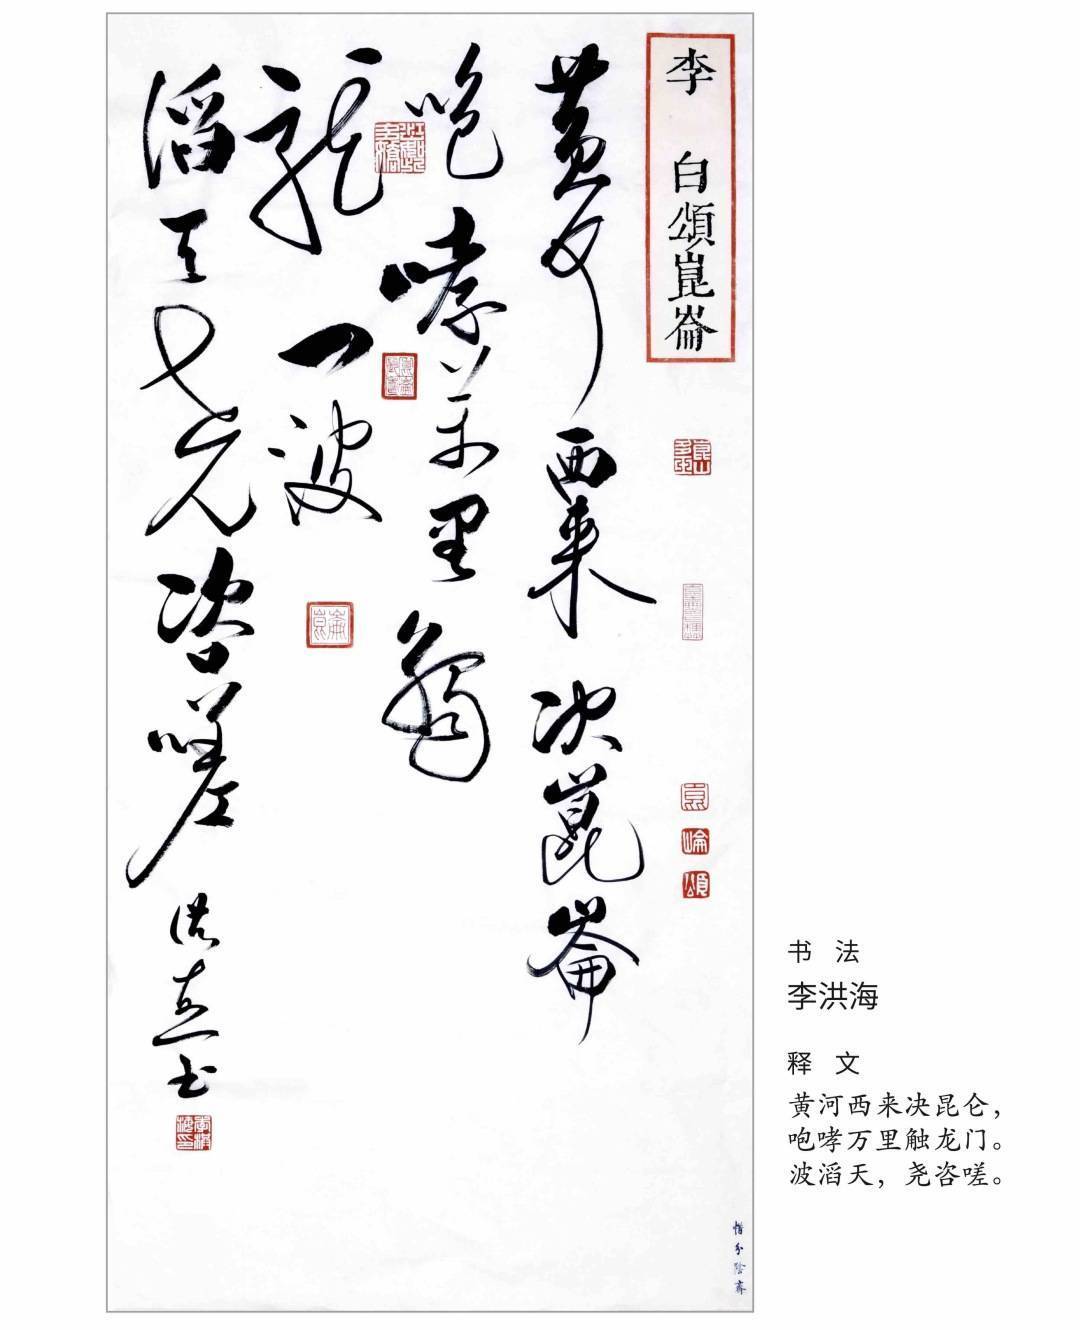 李白頌崑崙
黄河西来决崑崙
咆哮万里觸
龍门波
滔天尧咨嗟
洪海书
书法
李洪海
释文
黄河西来决昆仑，
咆哮万里触龙门。
波滔天，尧咨嗟。
惜分陰齋